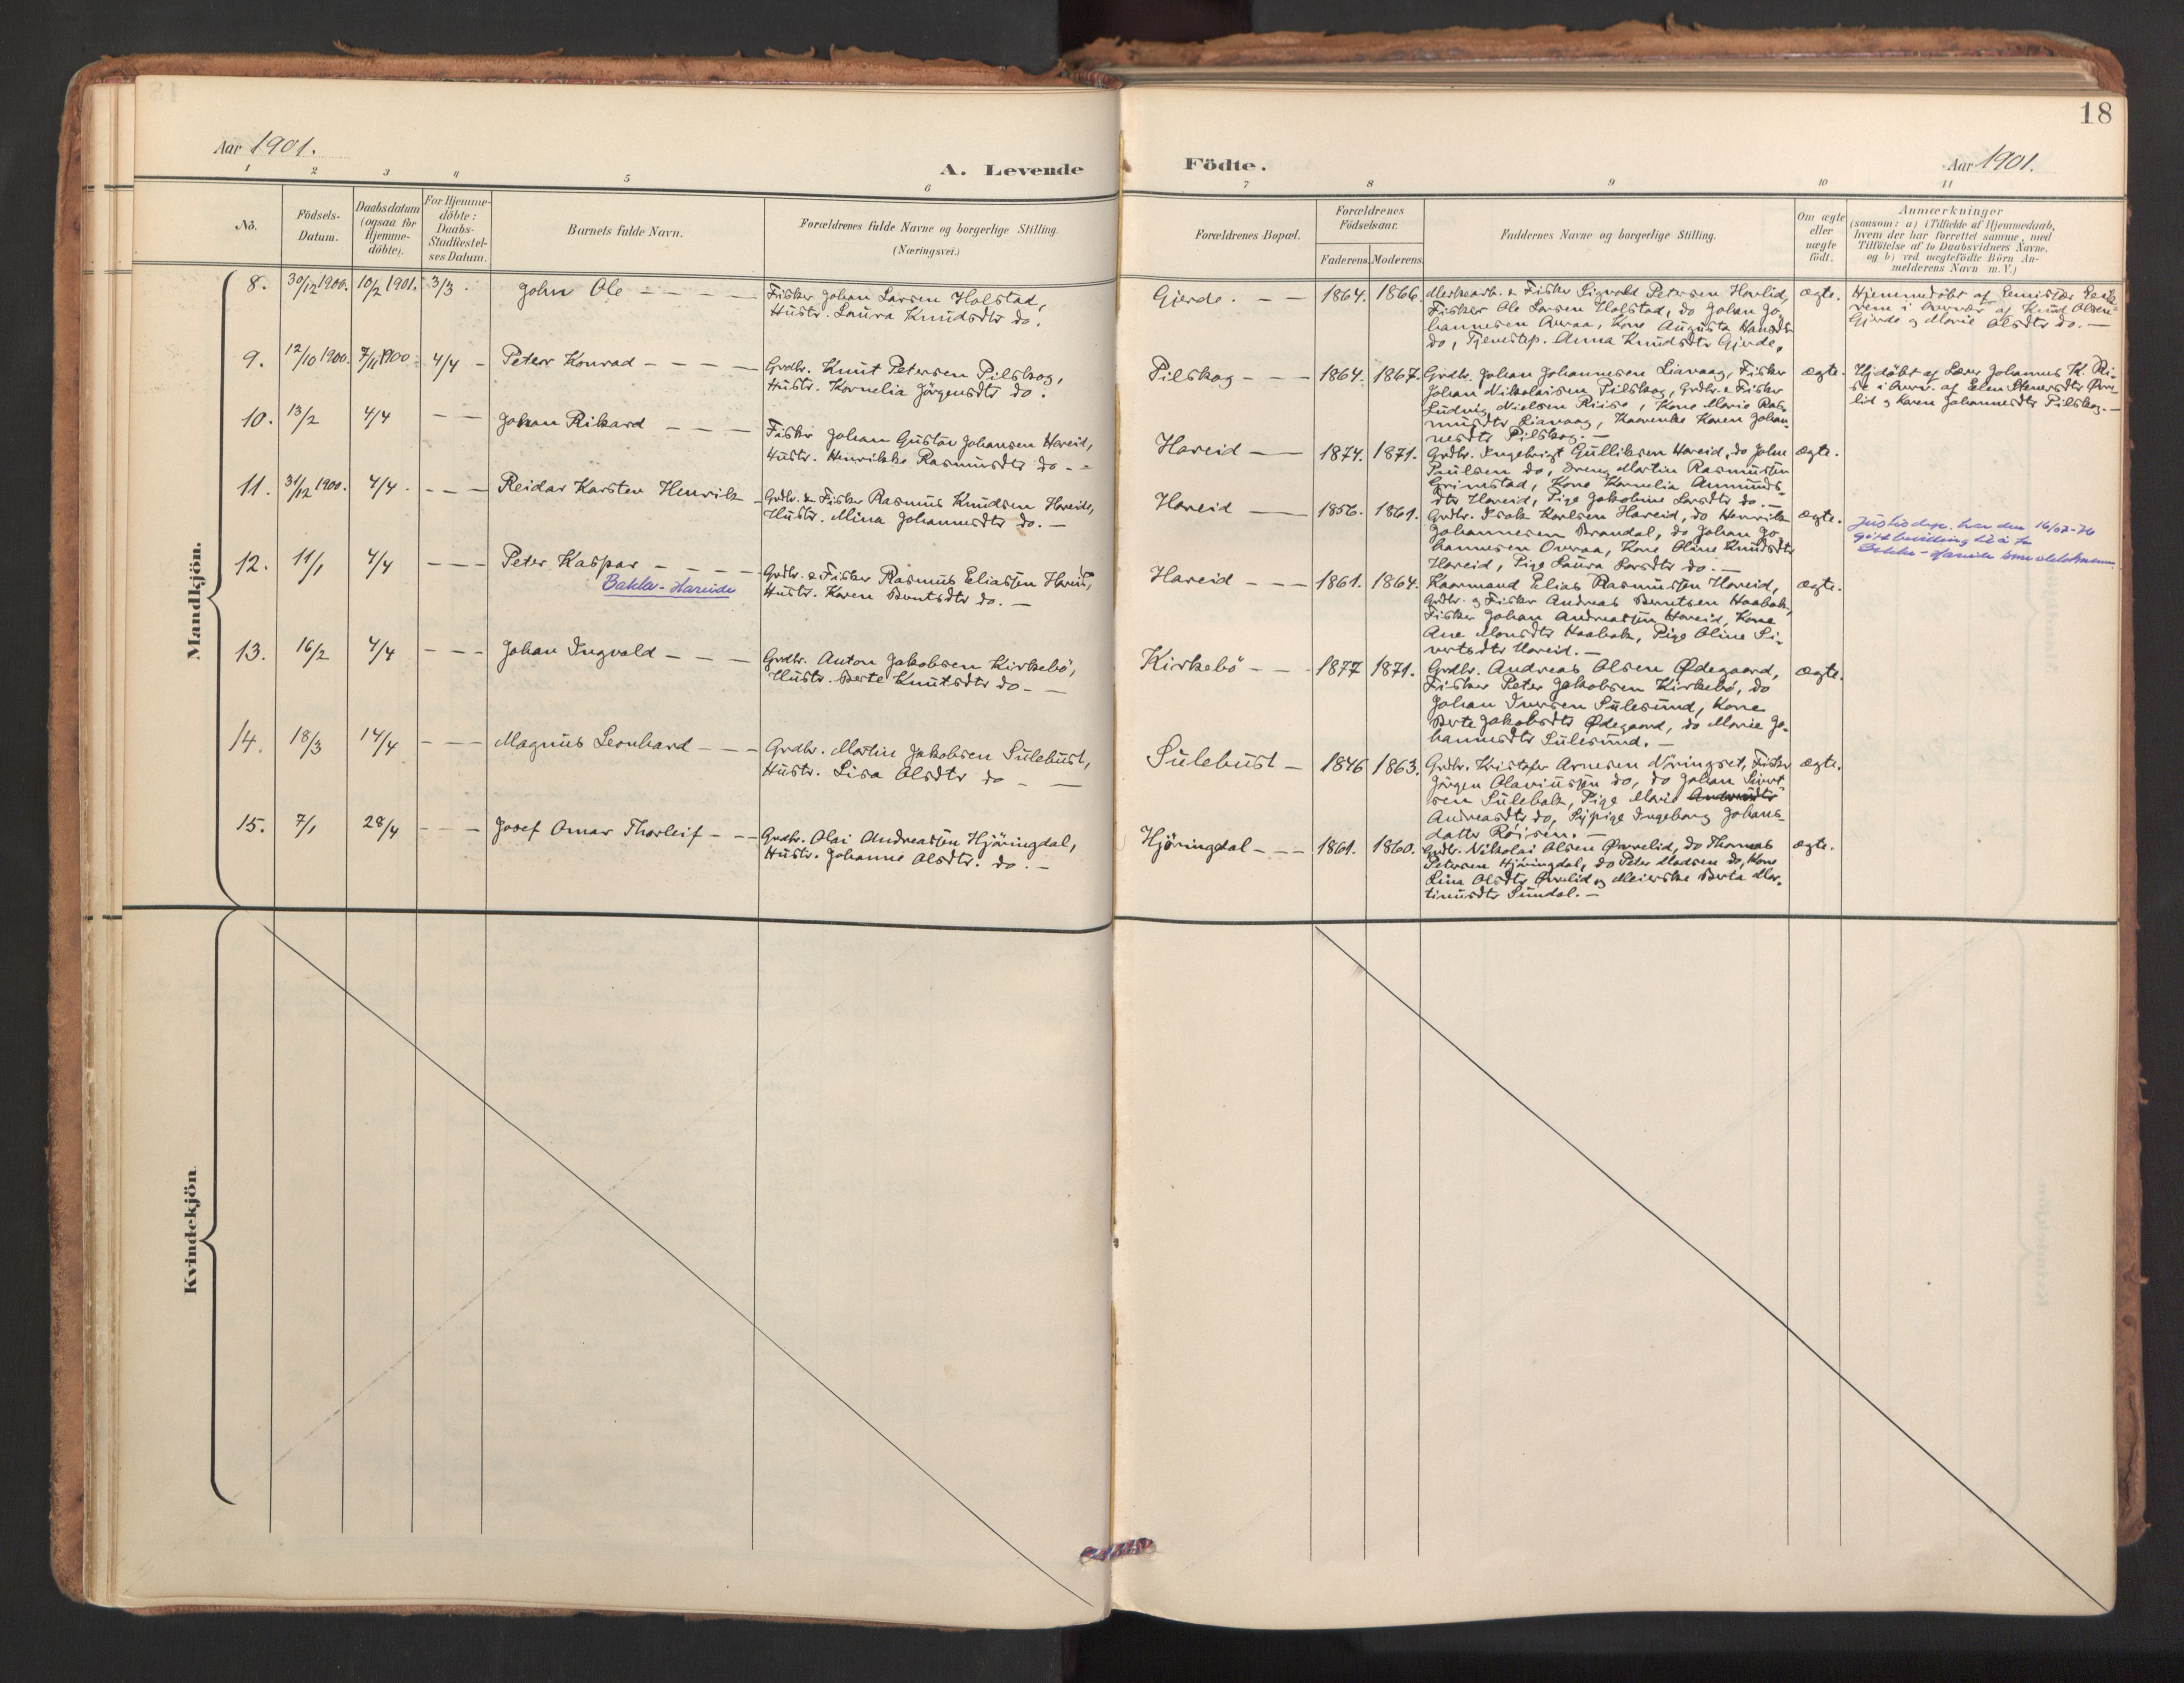 18
Aar 1901.
A. Levende
Födte.
Aar 1901.
1 2 3 4 5 6 7 8 9 10 11
No.
Födsels-
Datum.
Daabsdatum
(ogsaa for
Hjemme-
döbte).
For Hjemme-
döbte:
Daabs-
Stadfæstel-
ses Datum.
Barnets fulde Navn.
Forældrenes fulde Navne og borgerlige Stilling.
(Næringsvei.)
Forældrenes Bopæl.
Forældrenes
Födselsaar.
Faderens. Moderens.
Faddernes Navne og borgerlige Stilling.
Om ægte
eller
uægte
födt.
Anmærkninger
(saasom: a) i Tilfælde af Hjemmedaab,
hvem der har forrettet samme, med
Tilföielse af to Daabsvidners Navne,
og b) ved uægtefödte Börn An-
melderens Navn m. V.)
Mandkjön.
8. 30/12 1900. 10/2 1901. 3/3. John Ole - - - -
Fisker Johan Larsen Holstad,
Hustr. Laura Knudsdtr do.
Gjerde. - - 1864. 1866.
Merkearb. & Fisker Sigvald Petersen Hovlid,
Fisker Ole Larsen Holstad, do Johan Jo-
hannesen Overaa, Kone Augusta Hansdtr
do, Tjenestep. Anna Knudsdtr Gjerde.
ægte.
Hjemmedöbt af Emissær
af Knud Olsen
Gjerde og Marie Olsdtr do. -
9. 12/10 1900. 7/11 1900 4/4 - Peter Konrad - - - -
Grdbr. Knut Petersen Pilskog,
Hustr. Kornelia Jörgensdtr do.
Pilskog - - - 1864. 1867.
Grdbr. Johan Johannesen Liavaag, Fisker
Johan Nikolaisen Pilskog, Grdbr. & Fisker
Ludvig Nielsen Riise, Kone Marie Ras-
musdtr Liavaag, Kaarenke Karen Johan-
nesdtr Pilskog. -
ægte.
Hjdöbt af Lærer Johannes K. Ri-
se i Overv. af Elen Steffensdtr Övre-
lid og Karen Johannesdtr Pilskog. -
10. 13/2 4/4 - - Johan Rikard - - -
Fisker Johan Gustav Johansen Hareid,
Hustr. Henrikke Rasmusdtr do - -
Hareid - - 1874. 1871.
Grdbr. Ingebrigt Gulliksen Hareid, do John
Paulsen do, Dreng Martin Rasmussen
Grimstad, Kone Kornelia Anmunds-
dtr Hareid, Pige Jakobine Larsdtr do. -
ægte.
11. 31/12 1900. 4/4. - - - Reidar Karsten Henrik -
Grdbr. & Fisker Rasmus Knudsen Hareid,
Hustr. Mina Johannesdtr do. -
Hareid - - 1856. 1861.
Grdbr. Isak Karlsen Hareid, do Henrik
Johannesen Brandal, do Johan Jo-
hannesen Overaa, Kone Oline Knudsdtr
Hareid, Pige Laura Larsdtr do. -
ægte.
Justisdep. har den 16/07-76
gitt bevilling til å ta
Bakke-Hareide som slektsnavn.
12. 11/1 4/4 - - - Peter Kaspar - - - -
Bakke-Hareide
Grdbr. & Fisker Rasmus Eliassen Hareid,
Hustr. Karen Berntsdtr do. -
Hareid - - - 1861. 1864.
Kaarmand Elias Rasmussen Hareid,
Grdbr. og Fisker Andreas Berntsen Haabak,
Fisker Johan Andreassen Hareid, Kone
Ane Monsdtr Haabak, Pige Oline Si-
vertsdtr Hareid. -
ægte.
13. 16/2 4/4 - - - Johan Ingvald - - -
Grdbr. Anton Jakobsen Kirkebö,
Hustr. Berte Knutsdtr do - -
Kirkebö - - 1877 1871.
Grdbr. Andreas Olsen Ødegaard,
Fisker Peter Jakobsen Kirkebö, do
Johan Iversen Sulesund, Kone
Berte Jakobsdtr Ødegaard, do Marie Jo-
hannesdtr Sulesund. -
ægte.
14. 18/3 14/4 - - - Magnus Leonhard - - -
Grdbr. Martin Jakobsen Sulebust,
Hustr. Lisa Olsdtr do - -
Sulebust - 1846 1863.
Grdbr. Kristofer Arnesen Nöringset, Fisker
Jörgen Olaviussen do, do Johan Sivert-
sen Sulebak, Pige Marie
Andreasdtr do, Sypige Ingeborg Johans-
datter Röisen. -
ægte.
15. 7/1 28/4 - - - Josef Omar Thorleif - - -
Grdbr. Olai Andreassen Hjöringdal,
Hustr. Johanne Olsdtr. do. -
Hjöringdal - - - 1861. 1860.
Grdbr. Nikolai Olsen Övrelid, do Thomas
Petersen Hjöringdal, do Peter Madsen do, Kone
Lina Olsdtr Övrelid og Meierske Berta Mar-
tinusdtr Sundal. -
ægte.
Kvindekjön.